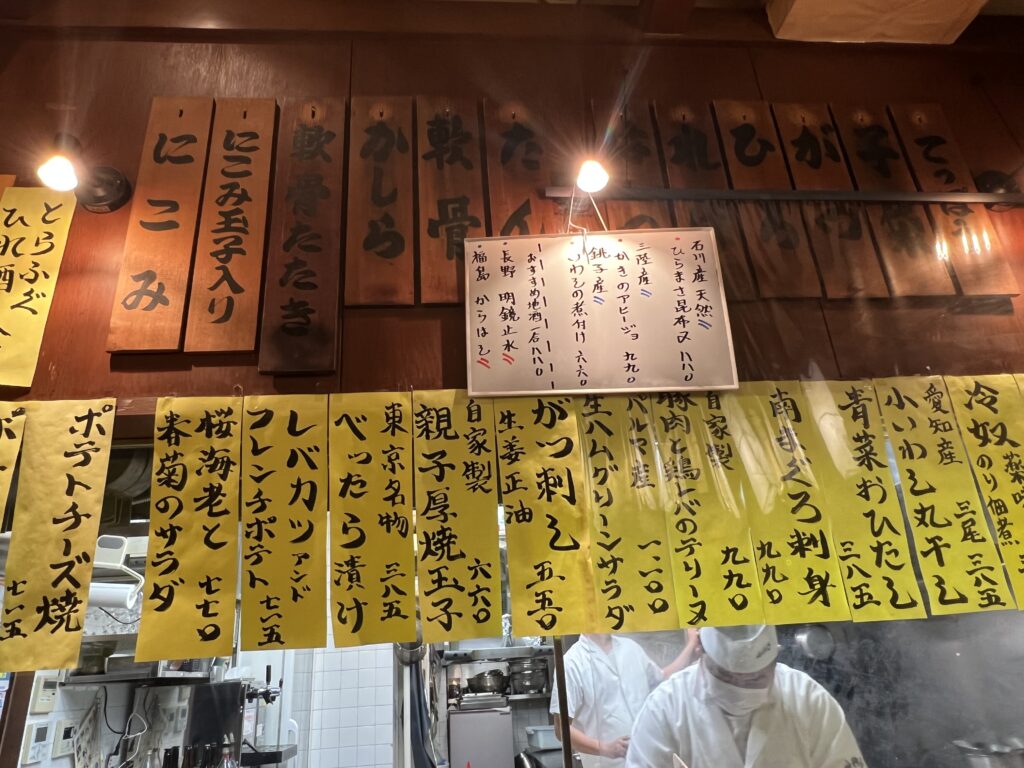 たん
軟骨
かしら
軟骨たたき
にこみ玉子入り
にこみ
石川産 天然
ひらまさ昆布〆 八八〇
三陸産
かきのアヒージョ 九九〇
銚子産
いわしの煮付け 六六〇
おすすめ地酒一合八八〇
長野 明鏡止水
福島 からはし
とらふぐ
ひれ酒
冷奴 薬味
のり佃煮
三八五
愛知産
小いわし丸干し 三尾
青菜おひたし 三八五
南まぐろ刺身 九九〇
自家製
豚肉と鶏レバのテリーヌ 九九〇
パルマ産
生ハムグリーンサラダ 一一〇〇
がつ刺し 五五〇
生姜正油
自家製
親子厚焼玉子 六六〇
東京名物
べったら漬け 三八五
レバカツ アンド
フレンチポテト 七一五
桜海老と
春菊のサラダ 七七〇
ポテトチーズ焼 七一五